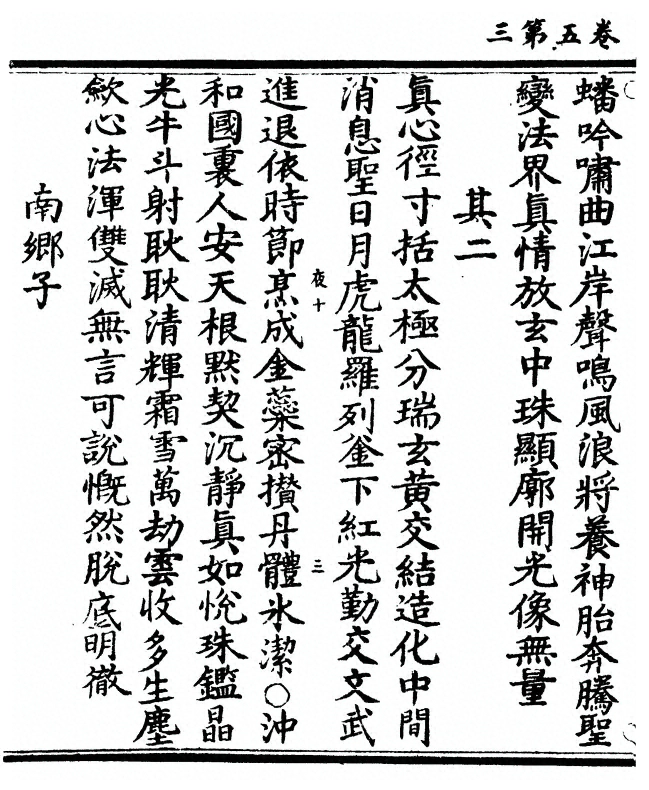 卷五第三
蟠吟嘯曲江岸聲鳴風浪將養神胎奔騰聖
變法界真情放玄中珠顯廓開光像無量
其二
真心徑寸括太極分瑞玄黃交結造化中間
消息聖日月虎龍羅列釜下紅光勤交文武
夜十
三
進退依時節烹成金蘂密攅丹體氷潔○沖
和國裏人安天根默契沉靜真如悅珠鑑晶
光牛斗射耿耿清輝霜雪萬劫雲收多生塵
歛心法渾雙滅無言可說慨然脫底明徹
南鄉子